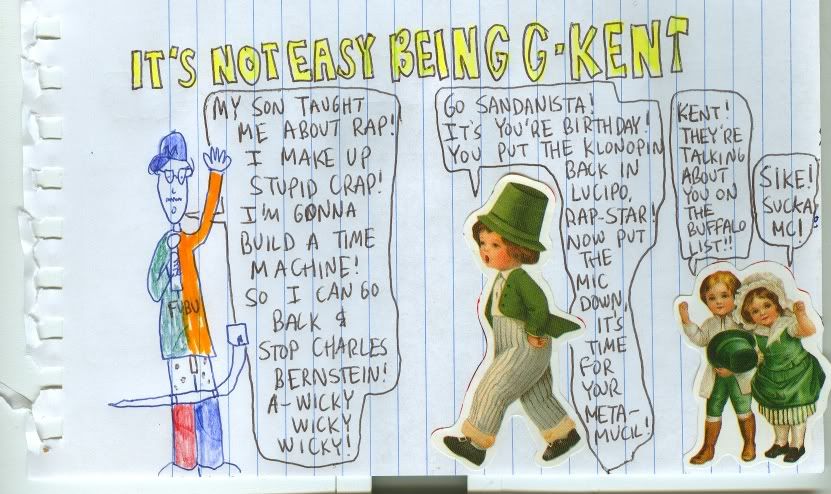 IT'S NOT EASY BEING G-KENT
MY SON TAUGHT
ME ABOUT RAP!
I MAKE UP
STUPID CRAP!
I'M GONNA
BUILD A TIME
MACHINE!
SO I CAN GO
BACK &
STOP CHARLES
BERNSTEIN!
A-WICKY
WICKY
WICKY!
FUBU
GO SANDANISTA!
IT'S YOU'RE BIRTHDAY!
YOU PUT THE KLONOPIN
BACK IN
LUCIPO,
RAP-STAR!
NOW PUT
THE
MIC
DOWN,
IT'S
TIME
FOR
YOUR
META-
MUCIL!
KENT!
THEY'RE
TALKING
ABOUT
YOU ON
THE
BUFFALO
LIST!!
SIKE!
SUCKA
MC!